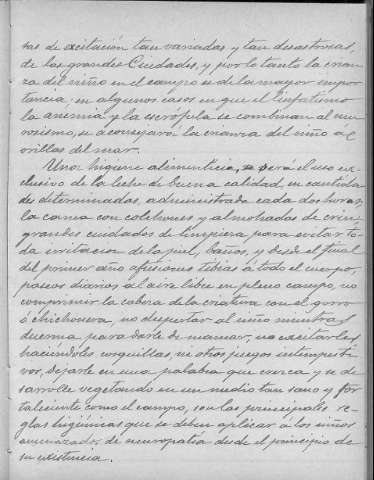 sas de excitación tan variadas y tan desastrosas,
de las grandes Ciudades, y por lo tanto la crian-
za del niño en el campo es de la mayor impor-
tancia; en algunos casos en que el linfatismo
la anemia y la escrófula se combinan al neu-
rosismo, se aconsejará la crianza del niño a
orillas del mar.
Una higiene alimenticia, será el uso ex-
clusivo de la leche de buena calidad, en cantida-
des determinadas, administrada cada dos horas,
la cama con colchones y almohadas de crin
grandes cuidados de limpieza para evitar to-
da irritacion de la piel, baños, y desde el final
del primer año afusiones tibias á todo el cuerpo,
paseos diarios al aire libre en pleno campo, no
comprimir la cabeza de la criatura con el gorro
ó chichonera, no despertar al niño mientras
duerma para darle de mamar, no excitarles
haciéndoles cosquillas ni otros juegos intempesti-
vos, dejarle en una palabra que crezca y se de-
sarrolle vegetando en un medio tan sano y for-
taleciente como el campo, son las principales re-
glas higiénicas que se deben aplicar á los niños
amenazados de neuropatía desde el principio de
su existencia.